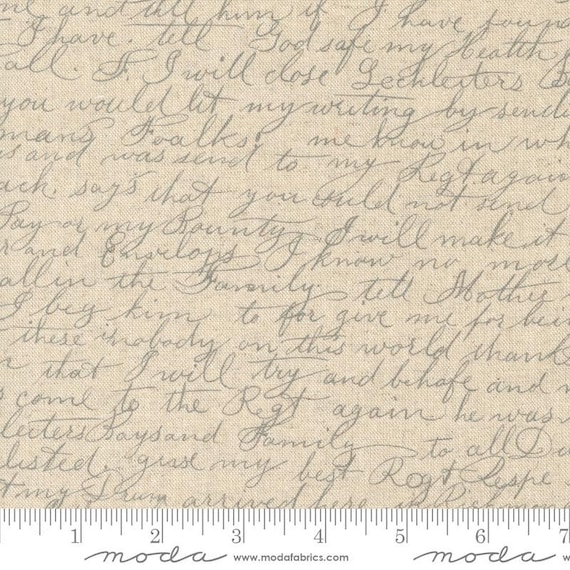 and tell him if I have found
I have. tell God safe my Health
all. F. I will close Lechleiters
you would let my writing by send
mans Foalks. me know in wh
and was send to my Regt again
ack. says that you could not send
Pay or my Bounty I will make it
and Envelops I know no mose
all in the Family tell Mother
I beg him to for give me for bein
these is nobody on this world thank
that I will try and behafe and
come to the Regt again he was
leiters Says and Family to all
listed. give my best Regt Respe
my Drum arrived here in
1 2 3 4 5 6 7
moda www.modafabrics.com moda w